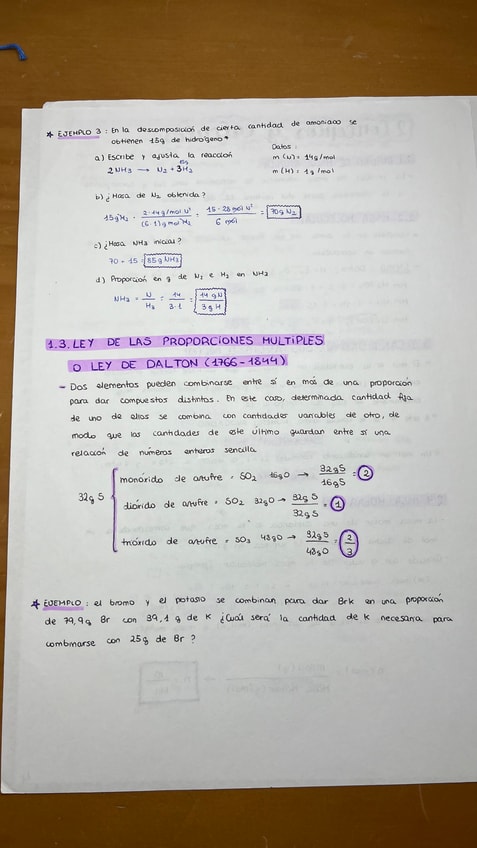 * EJEMPLO 3 : En la descomposición de cierta cantidad de amoniaco se
obtienen 15g de hidrógeno *
Datos :
m (N) = 14 g/mol
m (H) = 1 g/mol
a) Escribe y ajusta la reacción
15g
2NH3 → N2 + 3H2
b) ¿Masa de N2 obtenida?
15gH2 · 2·14 g/mol N2 / (6·1) g mol H2 = 15·28 g/mol N2 / 6 mol = 70g N2
c) ¿Masa NH3 inicial?
70 + 15 = 85g NH3
d) Proporción en g de N2 e H2 en NH3
NH3 = N / H3 = 14 / 3·1 = 14 g N / 3 g H
1.3. LEY DE LAS PROPORCIONES MULTIPLES
O LEY DE DALTON (1766-1844)
- Dos elementos pueden combinarse entre sí en más de una proporción
para dar compuestos distintos. En este caso, determinada cantidad fija
de uno de ellos se combina con cantidades variables de otro, de
modo que las cantidades de este último guardan entre sí una
relación de números enteros sencilla
32g S
monóxido de azufre = SO2 16gO → 32g S / 16g S = 2
dióxido de azufre = SO2 32gO → 32g S / 32g S = 1
trióxido de azufre = SO3 48gO → 32g S / 48g O = 2/3
* EJEMPLO : el bromo y el potasio se combinan para dar Brk en una proporción
de 79,9g Br con 39,1 g de K ¿Cuál será la cantidad de k necesaria para
combinarse con 25g de Br ?